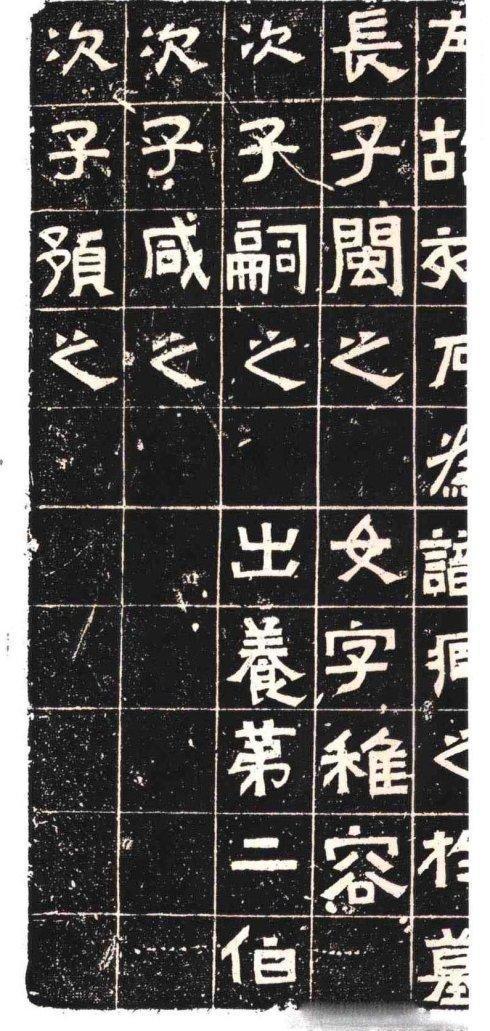 左故刻石為識臧之於墓
長子閩之 女字稚容
次子嗣之 出養苐二伯
次子咸之
次子預之